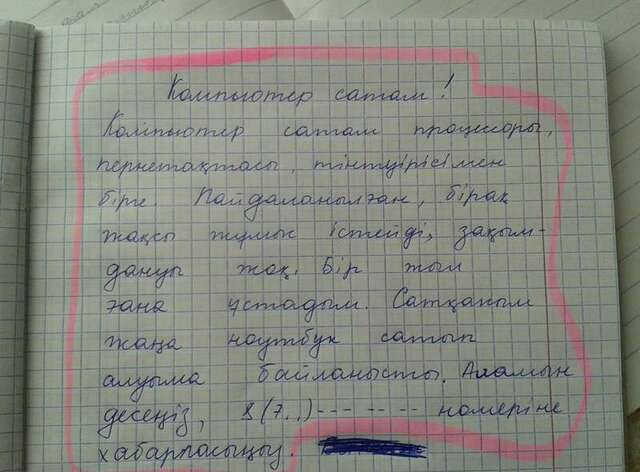 Компьютер сатам!
Компьютер сатам процессоры,
пернетақтасы, тінтуірісімен
бірге. Пайдаланылған, бірақ
жақсы жұмыс істейді, зақым-
дануы жоқ. Бір жыл
ғана ұстадым. Сатқаным
жаңа ноутбук сатып
алуыма байланысты. Аламын
десеңіз, 8(7..)--- -- -- номеріне
хабарласыңыз.